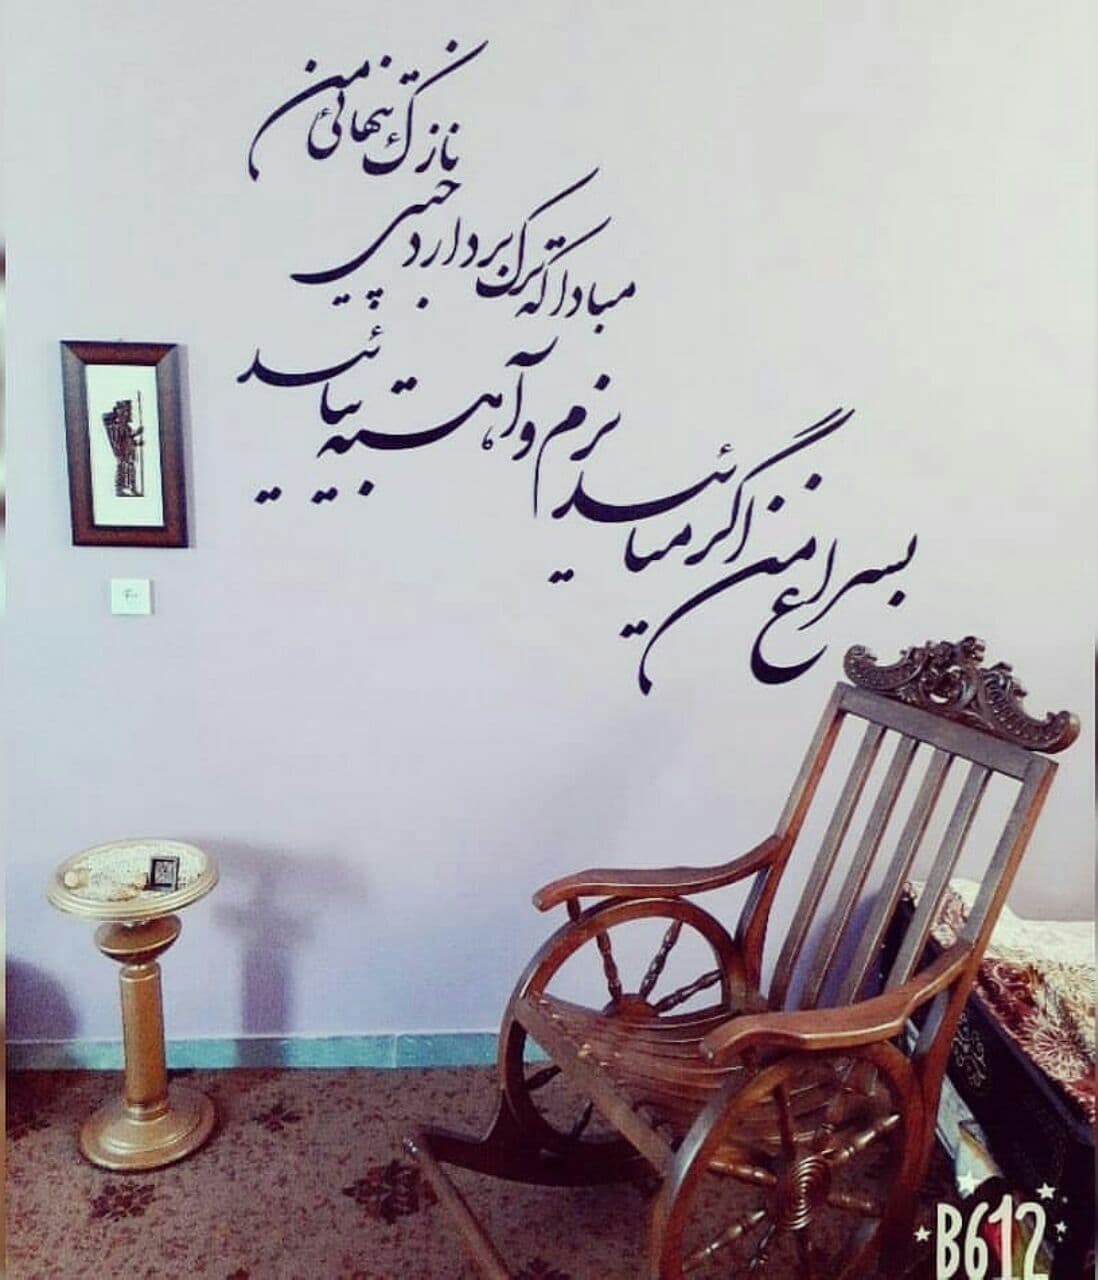 بسراغ من اگر میائید نرم و آهسته بیائید
مبادا که ترک بردارد چینی
نازک تنهائی من
B612